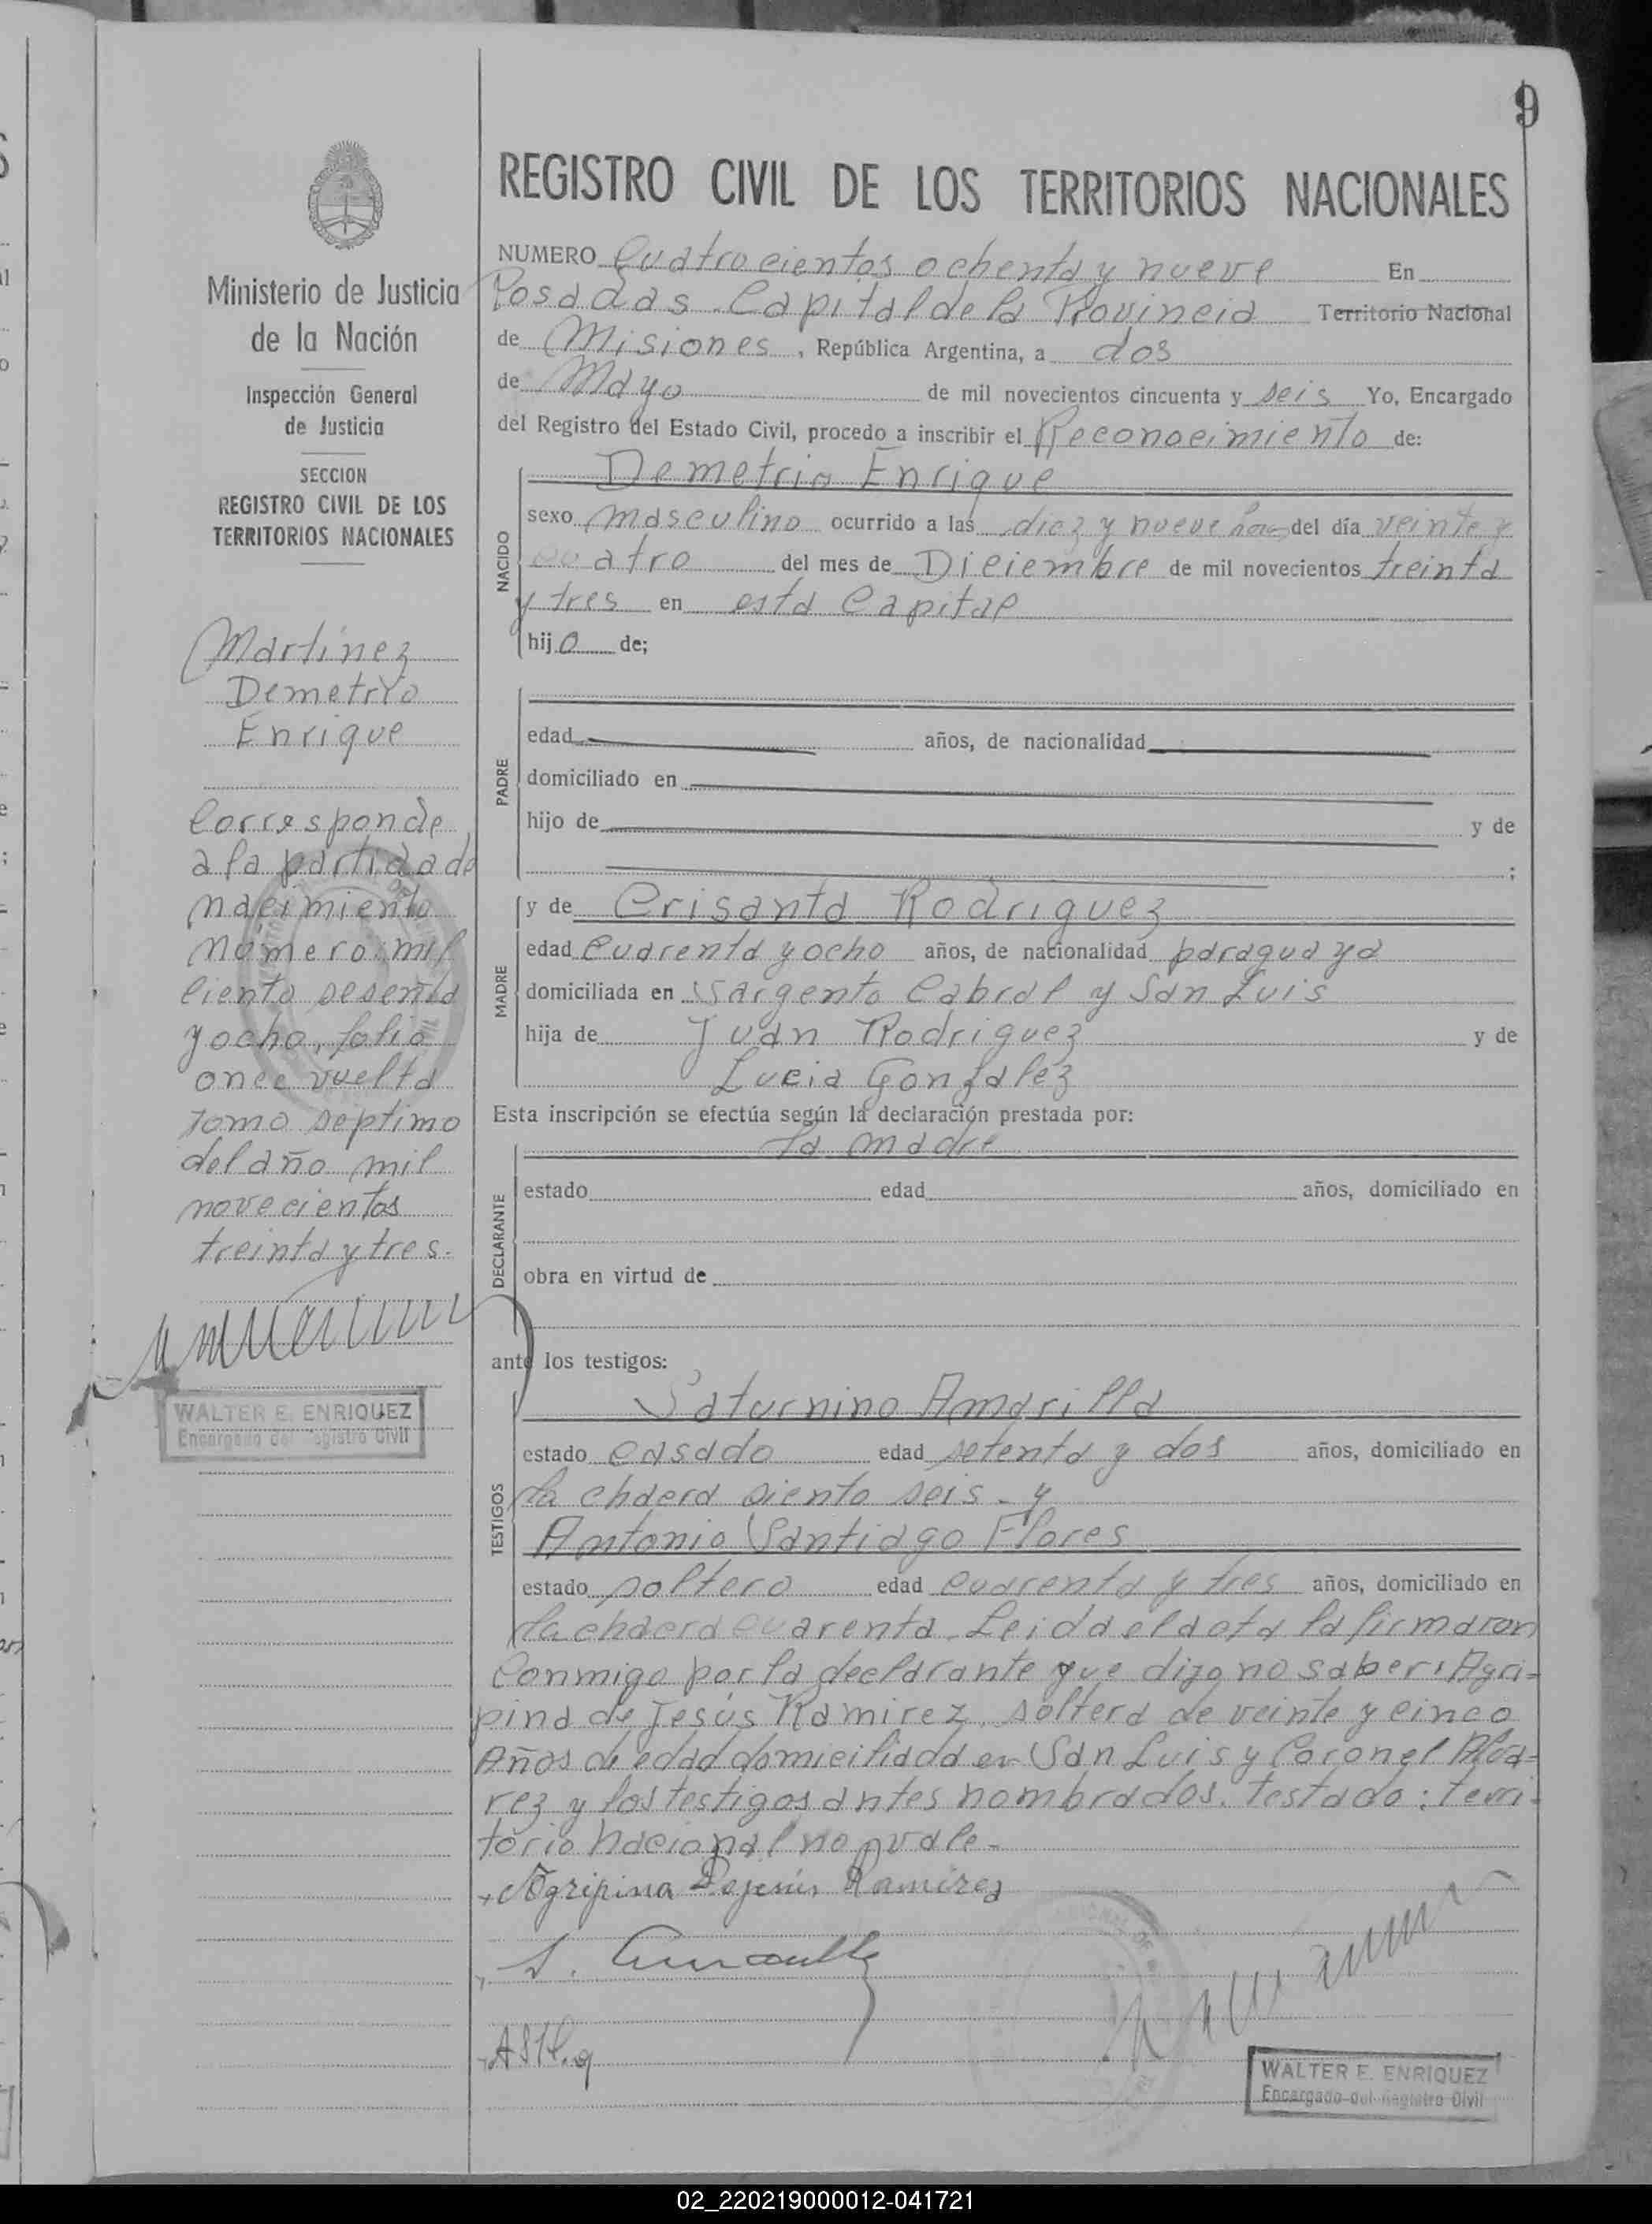 9
REGISTRO CIVIL DE LOS TERRITORIOS NACIONALES
Ministerio de Justicia
de la Nación
Inspección General
de Justicia
SECCION
REGISTRO CIVIL DE LOS
TERRITORIOS NACIONALES
Martinez
Demetrio
Enrique
Corresponde
a la partida de
nacimiento
número mil
ciento sesenta
y ocho, folio
once vuelta
tomo septimo
del año mil
novecientos
treinta y tres.
WALTER E. ENRIQUEZ
Encargado del Registro Civil
NUMERO Cuatrocientos ochenta y nueve En
Posadas Capital de la Provincia Territorio Nacional
de Misiones, República Argentina, a dos
de Mayo de mil novecientos cincuenta y seis Yo, Encargado
del Registro del Estado Civil, procedo a inscribir el Reconocimiento de:
NACIDO
Demetrio Enrique
sexo masculino ocurrido a las diez y nueve del día veinte y
cuatro del mes de Diciembre de mil novecientos treinta
y tres en esta Capital
hijo de;
PADRE
edad años, de nacionalidad
domiciliado en
hijo de y de
;
MADRE
y de Crisanta Rodriguez
edad cuarenta y ocho años, de nacionalidad paraguaya
domiciliada en Sargento Cabral y San Luis
hija de Juan Rodriguez y de
Lucia Gonzalez
Esta inscripción se efectúa según la declaración prestada por:
DECLARANTE
la madre
estado edad años, domiciliado en
obra en virtud de
ante los testigos:
TESTIGOS
Saturnino Amarilla
estado casado edad setenta y dos años, domiciliado en
la chacra siento seis - y
Antonio Santiago Flores
estado soltero edad cuarenta y tres años, domiciliado en
la chacra cuarenta. Leida el acta la firmaron
conmigo por la declarante que dijo no saber: Agri=
pina de Jesús Ramirez, soltera de veinte y cinco
Años de edad domiciliada en San Luis y Coronel Alva=
rez y los testigos antes nombrados. testado: terri=
torio nacional no vale -
Agripina Dejesús Ramirez
S. Amarilla
WALTER E. ENRIQUEZ
Encargado del Registro Civil
02_220219000012-041721